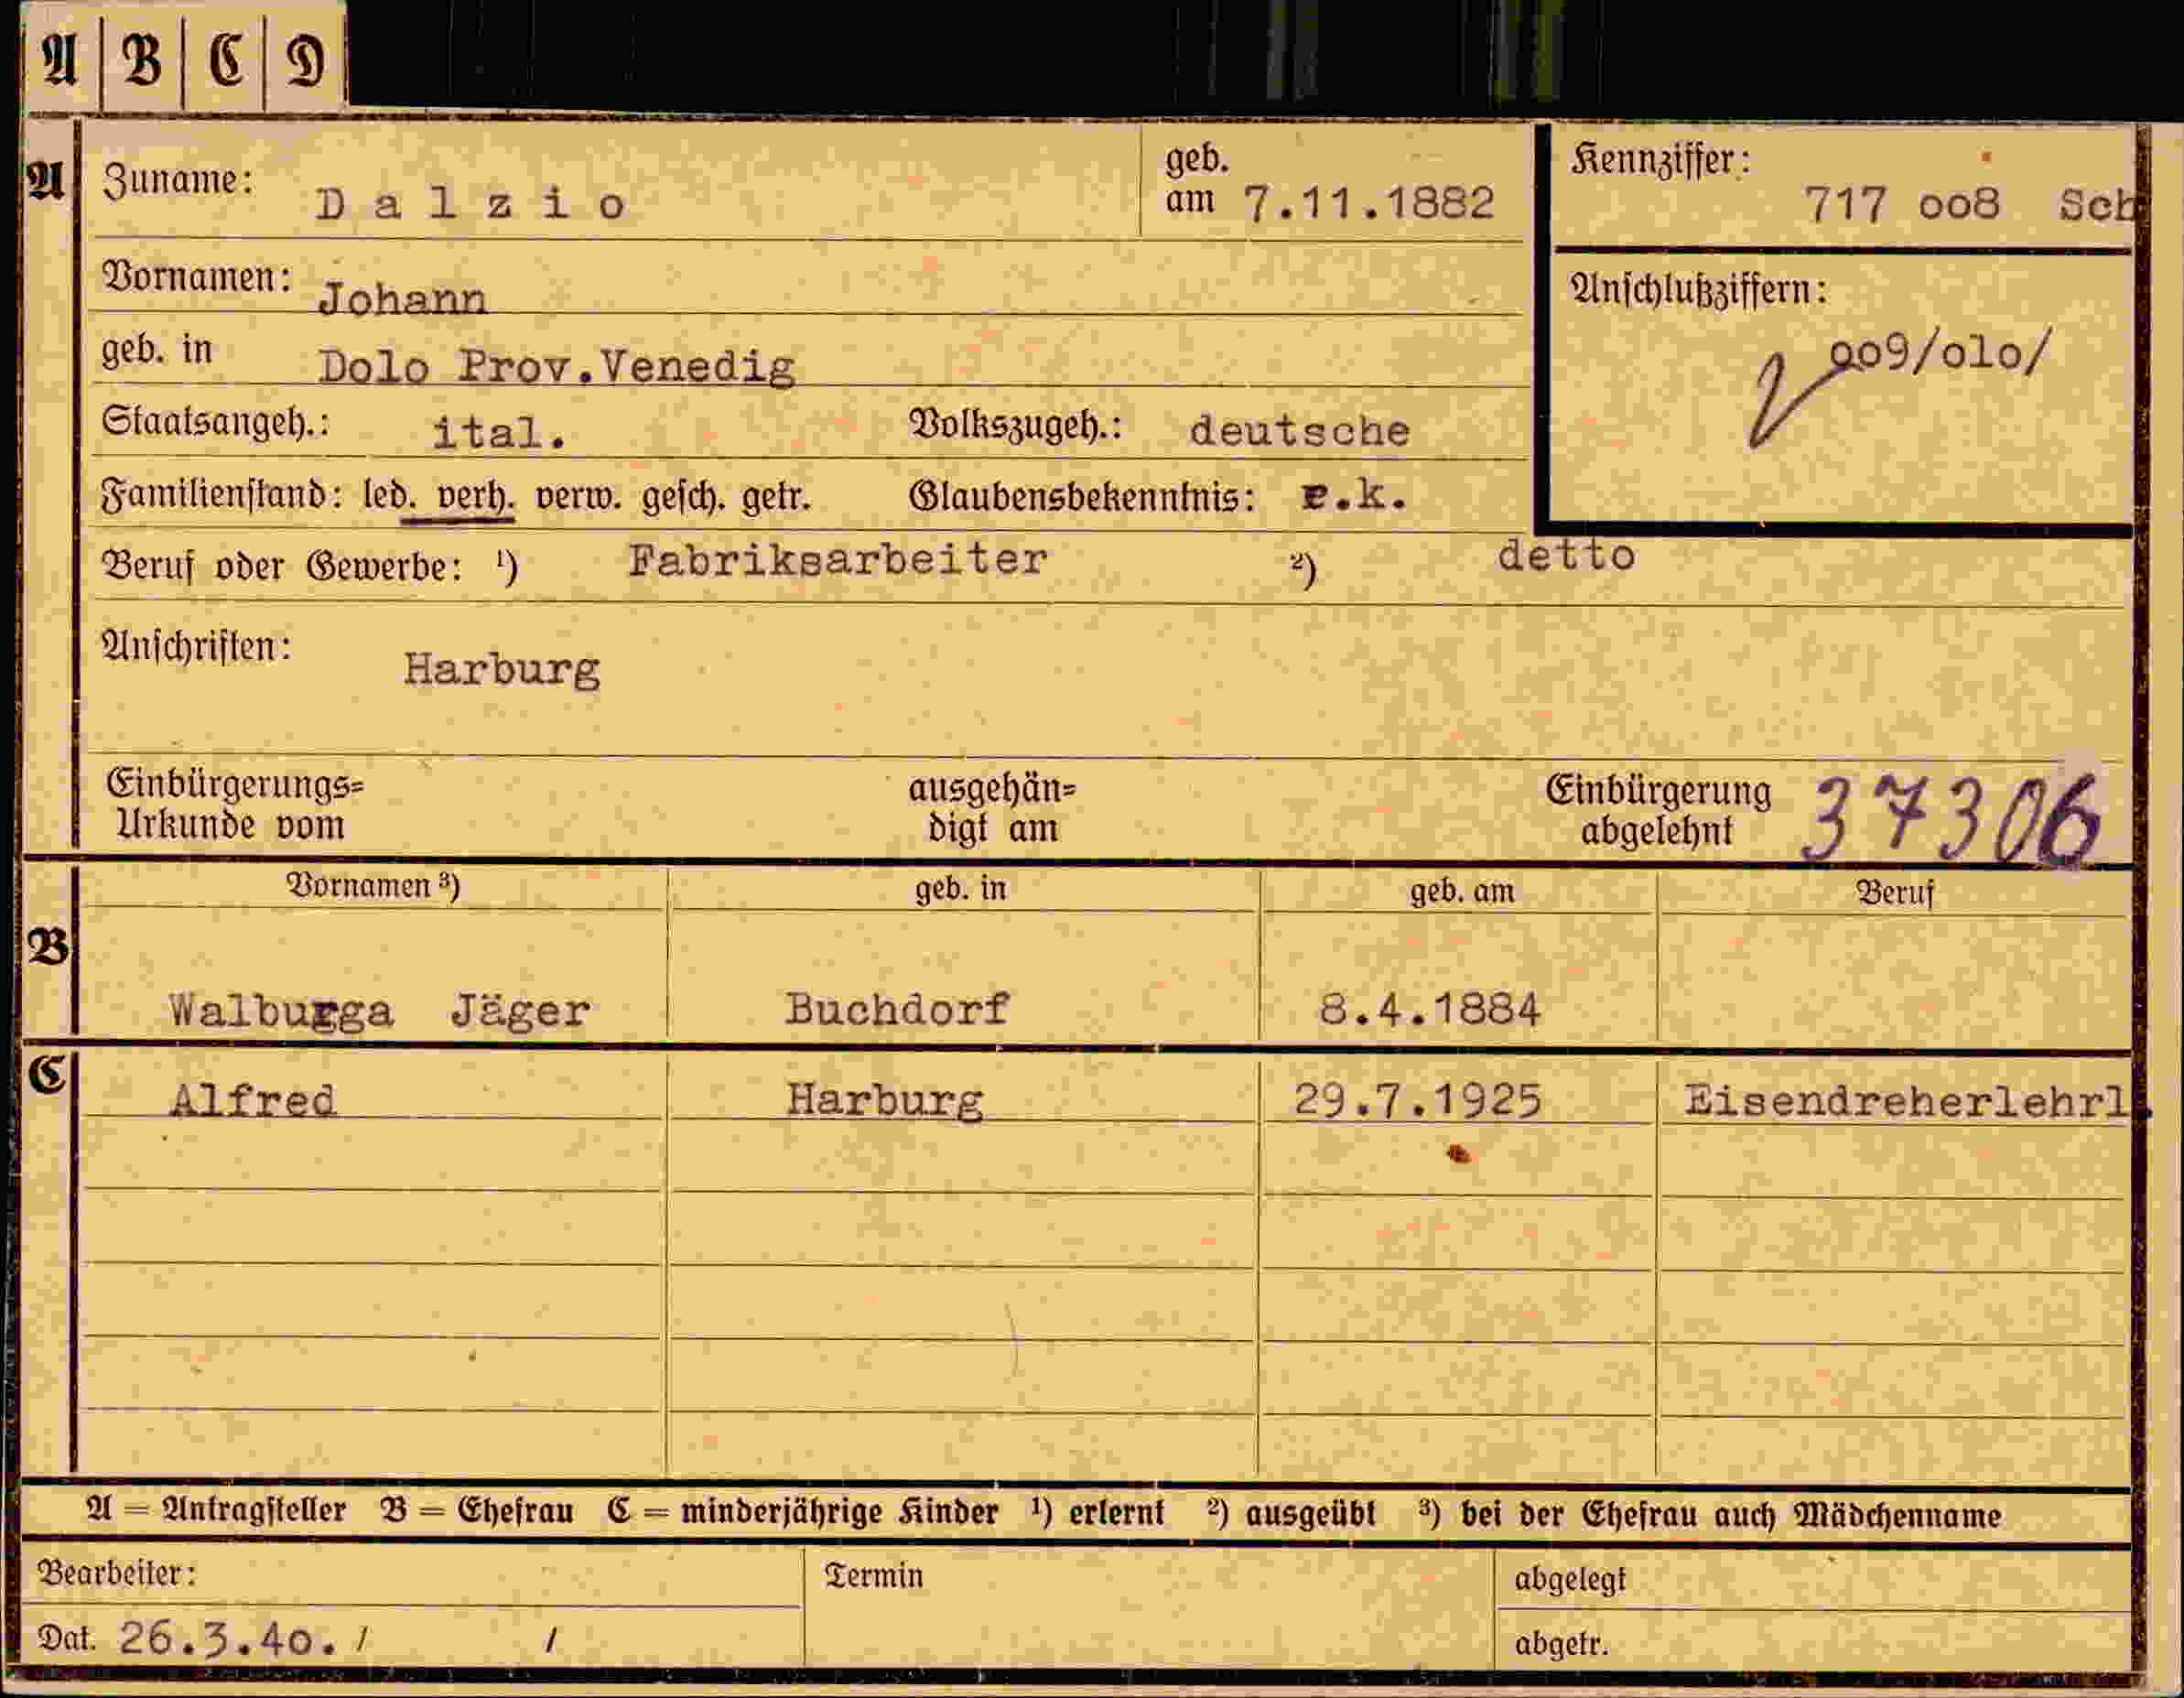 A B C D
A Zuname: Dalzio geb. am 7.11.1882 Kennziffer: 717 oo8 Sch
Vornamen: Johann Anschlußziffern:
geb. in Dolo Prov.Venedig oo9/olo/
Staatsangeh.: ital. Volkszugeh.: deutsche
Familienstand: led. verh. verw. gesch. getr. Glaubensbekenntnis: r.k.
Beruf oder Gewerbe: ¹) Fabriksarbeiter ²) detto
Anschriften: Harburg
Einbürgerungs= Urkunde vom ausgehän= digt am Einbürgerung abgelehnt 37306
Vornamen ³) geb. in geb. am Beruf
B Walburga Jäger Buchdorf 8.4.1884
C Alfred Harburg 29.7.1925 Eisendreherlehrl.
A = Antragsteller B = Ehefrau C = minderjährige Kinder ¹) erlernt ²) ausgeübt ³) bei der Ehefrau auch Mädchenname
Bearbeiter: Termin abgelegt
Dat. 26.3.4o. / / abgetr.